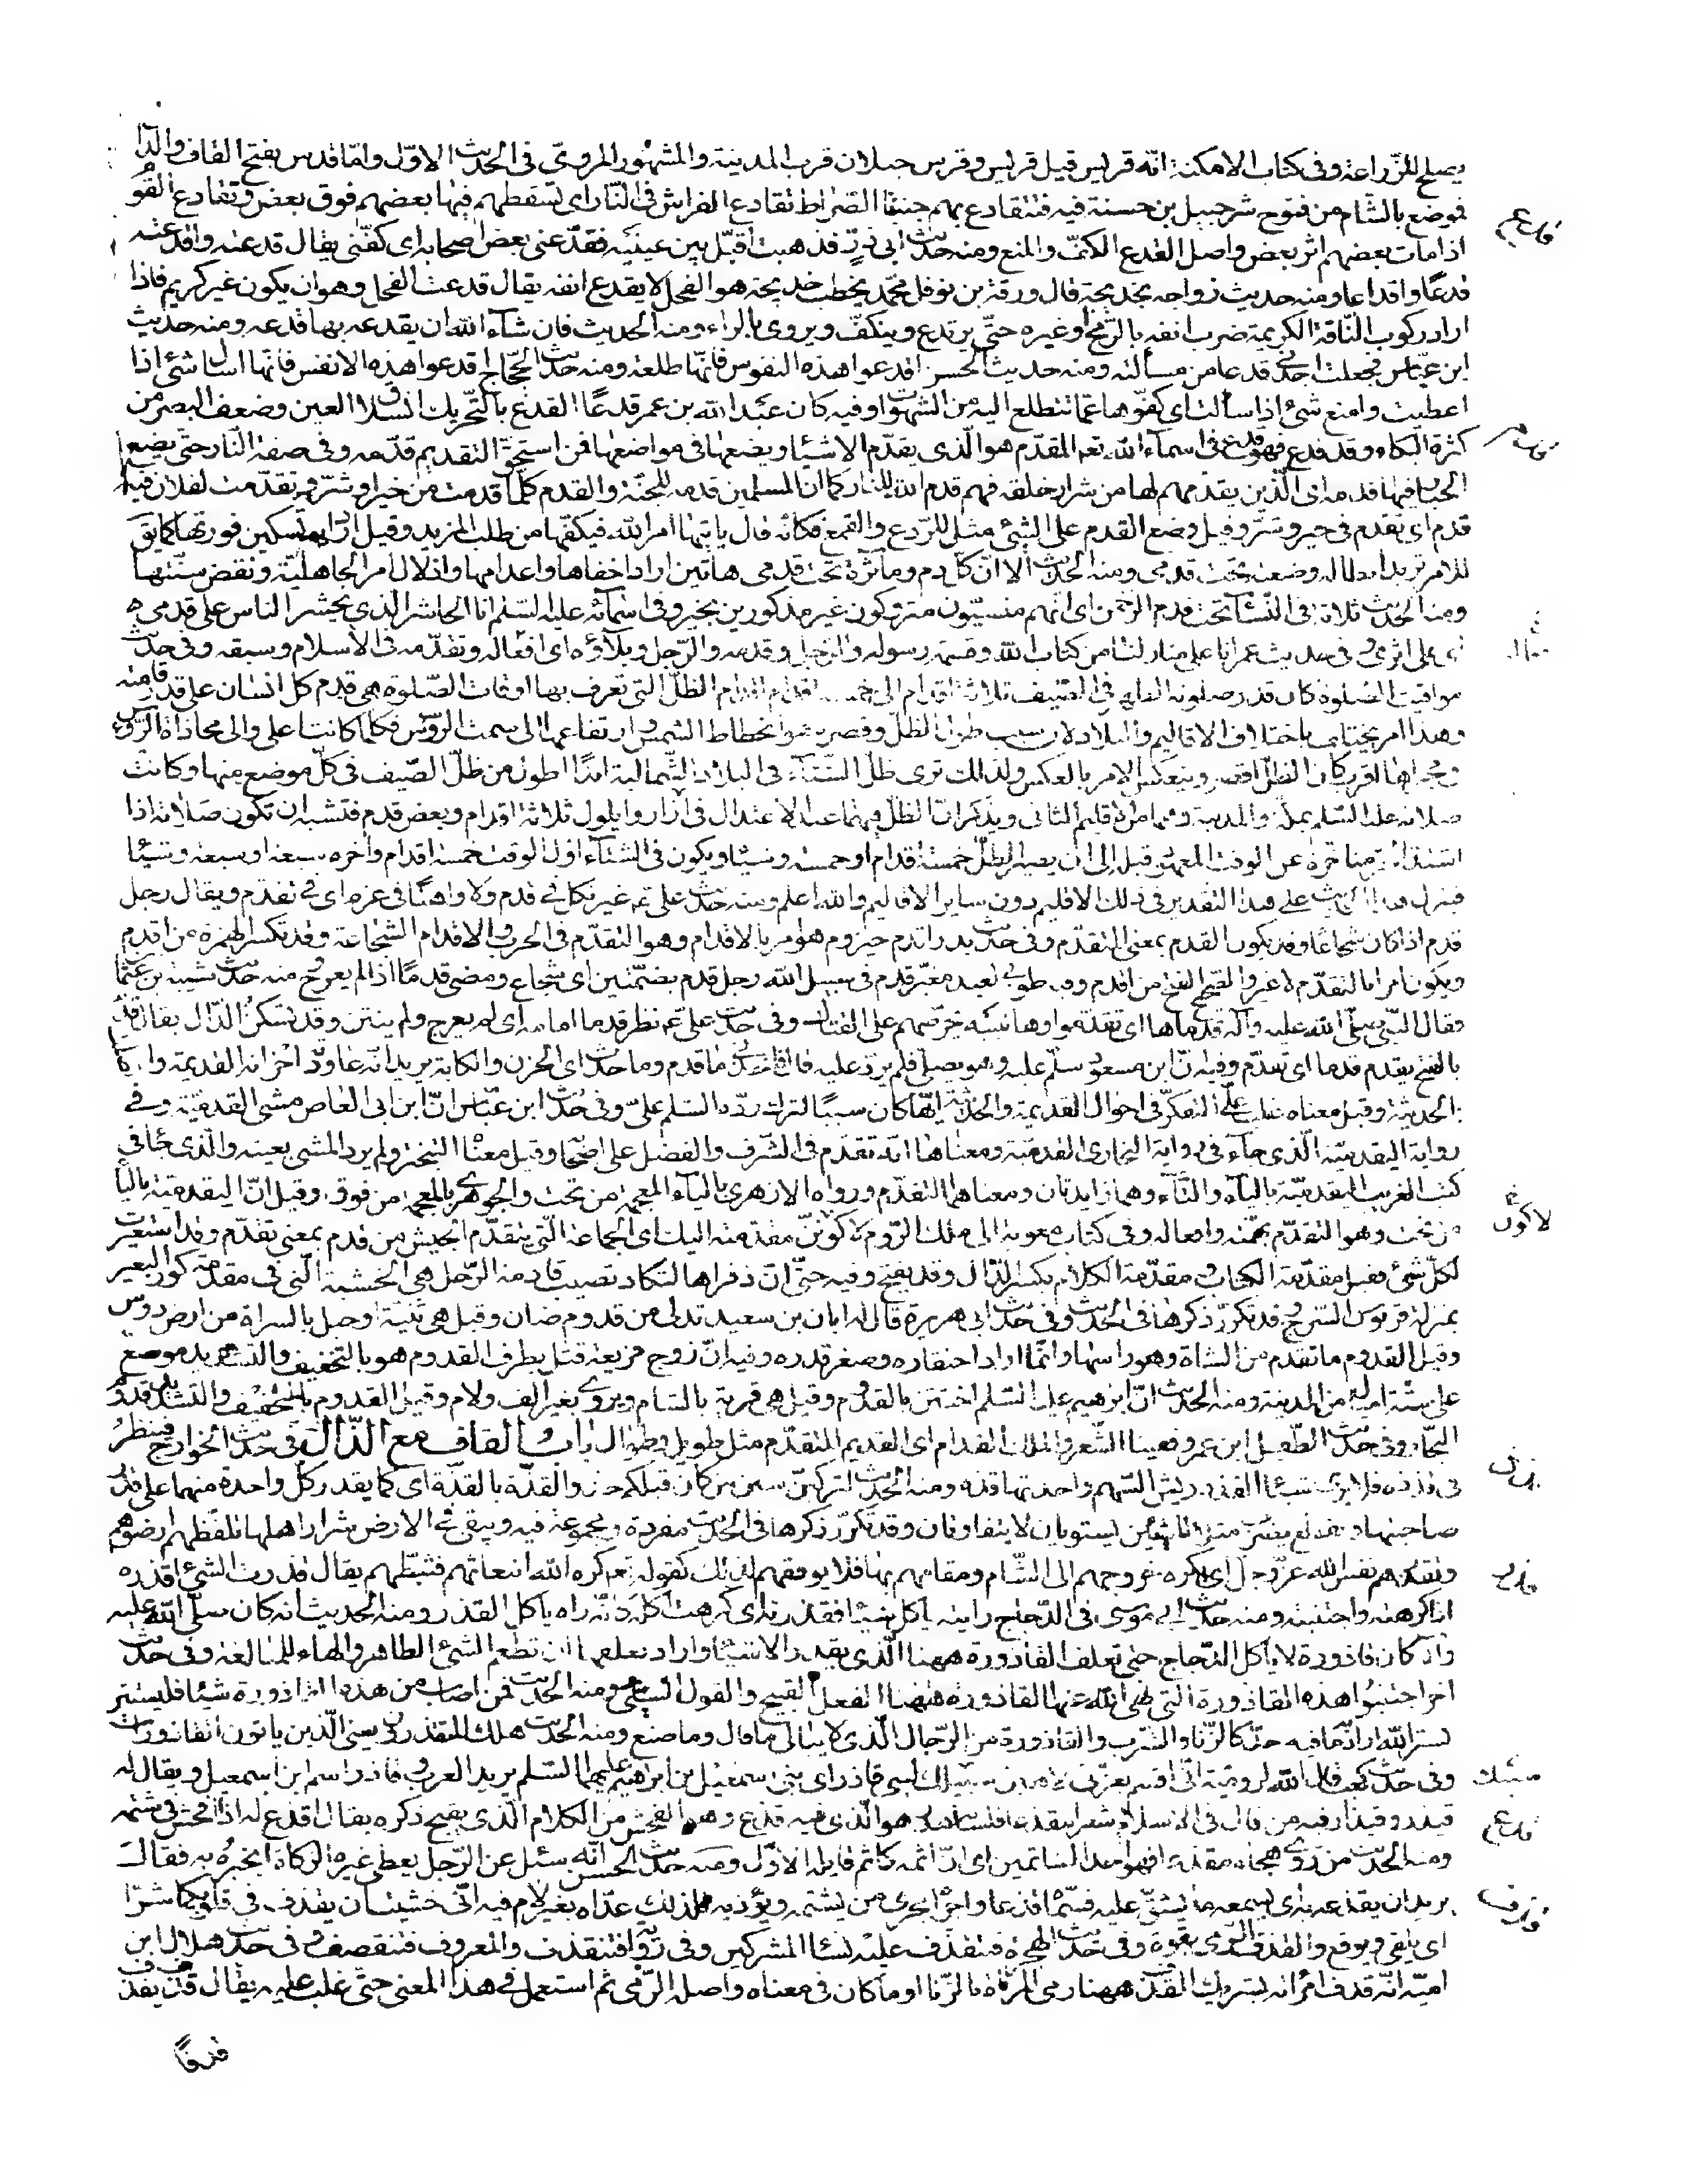 يصلح للزّراعة وفى كتاب الامكنة انّه قريس قيل قريس وقرس جبلان قرب المدينة والمشهور المروىّ فى الحديث الاوّل وامّا قدس بفتح القاف والدّال
فموضع بالشّام من فتوح شرحبيل بن حسنة فيه فتتقادع بهم جنبتا الصّراط تقادع الفراش فى النّار اى تسقطهم فيها بعضهم فوق بعض وتقادع القوم
اذا مات بعضهم اثر بعض واصل القدع الكفّ والمنع ومنه حديث ابى ذرّ فذهبت اقبّل بين عينيه فقدعنى بعض اصحابه اى كفّنى يقال قدعته واقدعته
قدعًا واقداعا ومنه حديث زواجه بخديجة قال ورقة بن نوفل محمّد يخطب خديجة هو الفحل لا يقدع انفه يقال قدعت الفحل وهو ان يكون غير كريم فاذا
اراد ركوب النّاقة الكريمة ضرب انفه بالرّمح او غيره حتّى يرتدع وينكفّ ويروى بالراء ومنه الحديث فان شآء الله ان يقدعه بها قدعه ومنه حديث
ابن عبّاس فجعلت اجد بى قدعا من مسألته ومنه حديث الحسن اقدعوا هذه النفوس فانّها طلعة ومنه حديث الحجّاج اقدعوا هذه الانفس فانّها اسأل شئ اذا
اعطيت وامنع شئ اذا سألت اى كفّوها عمّا تتطلع اليه من الشهوات وفيه كان عبد الله بن عمر قدعًا القدع بالتّحريك انسلاق العين وضعف البصر من
كثرة البكاء وقد قدع فهو قدع فى اسمآء الله تعم المقدّم هو الّذى يقدّم الاشيآء ويضعها فى مواضعها فمن استحقّ التقديم قدّمه وفى صفة النّار حتى يضع
الجبار فيها قدمه اى الّذين يقدّمهم لها من شرار خلقه فهم قدم الله للنّار كما ان المسلمين قدمه للجنّة والقدم كلّما قدمت من خير او شرّ وتقدّمت لفلان فيه
قدم اى تقدم فى خير وشرّ وقيل وضع القدم على الشئ مثل للرّدع والقمع فكانّه قال ياتيها امر الله فيكفّها من طلب المزيد وقيل اراد به تسكين فورتها كما يق
للامر تريد ابطاله وضعته تحت قدمى ومنه الحديث الا انّ كل دم ومأثرة تحت قدمى هاتين اراد اخفاها واعدامها واذلال امر الجاهليّة ونقض سنّتها
ومنه الحديث ثلاثة فى النّسا تحت قدم الرّحمن اى انّهم منسيّون متروكون غير مذكورين بخير وفى اسمآئه عليه السّلم انا الحاشر الذى يحشر الناس على قدمى
اى على اثرى وفى حديث عمر انا على منازلنا من كتاب الله وقسمة رسوله والرّجل وقدمه والرّجل وبلآؤه اى افعاله وتقدّمه فى الاسلام وسبقه وفى حديث
مواقيت الصّلوة كان قدر صلوته الظهر فى الصّيف ثلاثة اقدام الى خمسة اقدام اقدام الظلّ التى تعرف بها اوقات الصّلوة هى قدم كل انسان على قدر قامته
وهذا امر يختلف باختلاف الاقاليم والبلاد لان سبب طول الظلّ وقصره هو انحطاط الشمس وارتفاعها الى سمت الرّؤس فكلما كانت اعلى والى محاذاة الرّؤس
فى مجراها اقرب كان الظلّ اقصر وينعكس الامر بالعكس ولذلك ترى ظلّ الشّتآء فى البلاد الشّمالية ابدًا اطول من ظلّ الصّيف فى كلّ موضع منها وكانت
صلاته عليه السّلم بمكّة والمدينة وهما من الاقليم الثانى ويذكر انّ الظلّ فيهما عند الاعتدال فى آزار وايلول ثلاثة اقدام وبعض قدم فتشبه ان تكون صلاته اذا
اشتدّ الحرّ متاخّرة عن الوقت المعهود قبله الى ان يصير الظلّ خمسة اقدام او خمسة وشيئا ويكون فى الشتآء اوّل الوقت خمسة اقدام واخره سبعة او سبعة وشيئا
فينزل هذا الحديث على هذا التقدير فى ذلك الاقليم دون ساير الاقاليم والله اعلم ومنه حديث علىّ ع غير نكل فى قدم ولا واهنًا فى عزم اى فى تقدّم ويقال رجل
قدم اذا كان شجاعًا وقد يكون القدم بمعنى التقدّم وفى حديث بدر اقدم حيزوم هو امر بالاقدام وهو التقدّم فى الحرب والاقدام الشجاعة وقد تكسر الهمزة من اقدم
ويكون امرا بالتقدّم لا غير والصّحيح الفتح من اقدم وفيه طوبى لعبد مغبّر قدم فى سبيل الله رجل قدم بضمّتين اى شجاع ومضى قدمًا اذا لم يعرّج منه حديث شيبة بن عثمان
فقال النّبى صلّى الله عليه وآله قدما ها اى تقدّموا وها تنبيه يحرّضهم على القتال وفى حديث علىّ ع نظر قدما امامه اى لم يعرج ولم ينثن وقد تسكن الدّال يقال قدم
بالفتح يقدم قدما اى تقدّم وفيه انّ ابن مسعود سلّم عليه وهو يصلى فلم يردّ عليه قال فاخذنى ما قدم وما حدث اى الحزن والكابة يريد انّه عاودته احزانه القديمة واتّصلت
بالحديثة وقيل معناه غلب علىّ التفكّر فى احوالى القديمة والحديثة ايّها كان سببًا لترك ردّه السّلم علىّ وفى حديث ابن عبّاس انّ ابن ابى العاص مشى القدميّة وفى
رواية اليقدميّة الّذى جآء فى رواية البخارى القدميّة ومعناها انّه تقدّم فى الشّرف والفضل على اصحابه وقيل معناه التبختر ولم يرد المشى بعينه والّذى جآء فى
كتب الغريب اليقدميّة بالياء والتّآء وهما زايدتان ومعناهما التقدّم ورواه الازهرى باليآء المعجمة من تحت والجوهرى بالمعجمة من فوق وقيل انّ اليقدمية باليآء
من تحت وهو التقدّم بهمّته وافعاله وفى كتاب معوية الى ملك الرّوم لاكوننّ مقدّمته اليك اى الجماعة الّتى يتقدّم الجيش من قدم بمعنى تقدّم وقد استعيرت
لكلّ شئ فقيل مقدّمة الكتاب ومقدّمة الكلام بكسر الدّال وقد يفتح وفيه حتّى انّ ذفراها لتكاد تصيب قادمة الرّحل هى الخشبة الّتى فى مقدّمة كور البعير
بمنزلة قربوس السّرج وقد تكرّر ذكرها فى الحديث وفى حديث ابى هريرة قال له ابان بن سعيد تدلى من قدوم ضان وقيل هى ثنيّة او جبل بالسراة من ارض دوس
وقيل القدوم ما تقدم من الشاة وهو راسها وانّما اراد احتقاره وصغر قدره وفيه انّ زوج فريعة قتل بطرف القدوم هو بالتخفيف والتشديد موضع
على ستّة اميال من المدينة ومنه الحديث انّ ابرهيم عليه السّلم اختتن بالقدوم وقيل هى قرية بالشام ويروى بغير الف ولام وقيل القدوم بالتخفيف والتشديد قدوم
النجّار وفى حديث الطفيل ابن عمرو ففينا الشّعر والملك القدام اى القديم المتقدّم مثل طويل وطوال باب القاف مع الذّال فى حديث الخوارج فينظر
فى قذذه فلا يرى شيئا القذذ ريش السّهم واحدتها قذة ومنه الحديث لتركبنّ سنن من كان قبلكم حذو القذّة بالقذّة اى كما يقدر كل واحدة منهما على قدر
صاحبتها وتقطع يضرب مثلا للشيئين يستويان لا يتفاوتان وقد تكرّر ذكرها فى الحديث مفردة ومجموعة فيه ويبقى فى الارض شرار اهلها تلفظهم ارضوهم
وتقذرهم نفس الله عزّ وجل اى يكره خروجهم الى الشّام ومقامهم بها فلا يوفقهم لذلك كقوله تعم كره الله انبعاثهم فثبّطهم يقال قذرت الشئ اقذره
اذا كرهته واجتنبته ومنه حديث ابى موسى فى الدّجاج رايته ياكل شيئا فقذرته اى كرهت اكله كانّه راه ياكل القذر ومنه الحديث انه كان صلّى الله عليه
وآله كان قاذورة لا ياكل الدّجاج حتى تعلف القاذورة ههنا الّذى يقذر الاشيآء واراد بعلفها ان تطعم الشئ الطاهر والهاء للمبالغة وفى حديث
اخر اجتنبوا هذه القاذورة التى نهى الله عنها القاذورة ههنا الفعل القبيح والقول السيّئ ومنه الحديث فمن اصاب من هذه القاذورة شيئا فليستتر
بستر الله اراد ما فيه حدّ كالزّنا والشّرب والقاذورة من الرّجال الّذى لا يبالى ما قال وما صنع ومنه الحديث هلك المقذرون يعنى الّذين ياتون القاذورات
وفى حديث كعب قال الله لروميّة انّى اقسم بعزّتى لاهبنّ سبيك لبنى قاذر اى بنى اسمعيل بن ابرهيم عليهما السّلم يريد العرب وقاذر اسم ابن اسمعيل ويقال له
قيذر وقيذار فيه من قال فى الاسلام شعرا مقذعا فلسانه هدر هو الّذى فيه قذع وهو الفحش من الكلام الّذى يقبح ذكره يقال اقذع له اذا افحش فى شتمه
ومنه الحديث من روى هجاء مقذعا فهو احد الشاتمين اى انّ اثمه كاثم قايله الاوّل ومنه حديث الحسن انّه سئل عن الرّجل يعطى غيره الزكاة ايخبره به فقال
يريد ان يقذعه به اى يسمعه ما يشقّ عليه فسمّاه قذعا واجراه مجرى من يشتمه ويؤذيه فلذلك عدّاه بغير لام فيه انّى خشيت ان يقذف فى قلوبكما شرّا
اى يلقى ويوقع والقذف الرّمى بقوّة وفى حديث الهجرة فتنقذف عليه نسآء المشركين وفى رواية فتتقذف والمعروف فتتقصف وفى حديث هلال ابن
اميّة انّه قذف امرأته بشريك القذف ههنا رمى المرأة بالزّنا او ما كان فى معناه واصله الرّمى ثم استعمل فى هذا المعنى حتّى غلب عليه يقال قذف يقذف
قذفًا